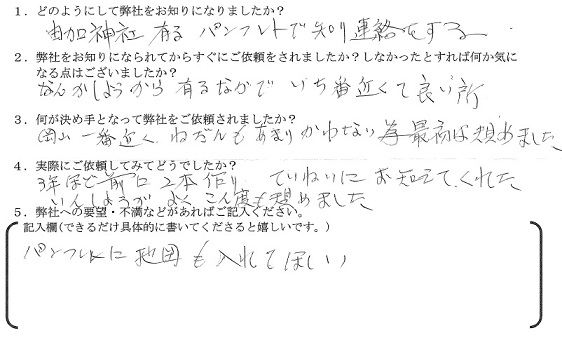 1. どのようにして弊社をお知りになりましたか？
由加神社 有る パンフレトで知り連絡をする
2. 弊社をお知りになられてからすぐにご依頼をされましたか？しなかったとすれば何か気に
なる点はございましたか？
なんかしょから 有るなかで いち番近くて良い所
3. 何が決め手となって弊社をご依頼されましたか？
岡山一番近く ねだんもあまりかわない為 最初は想めました
4. 実際にご依頼してみてどうでしたか？
3年ほど前に 2本作り ていねいに お知えてくれた
いんしょうがよく こん度も想めました
5. 弊社への要望・不満などがあればご記入ください。
記入欄（できるだけ具体的に書いてくださると嬉しいです。）
パンフレトに地図も入れてほしい